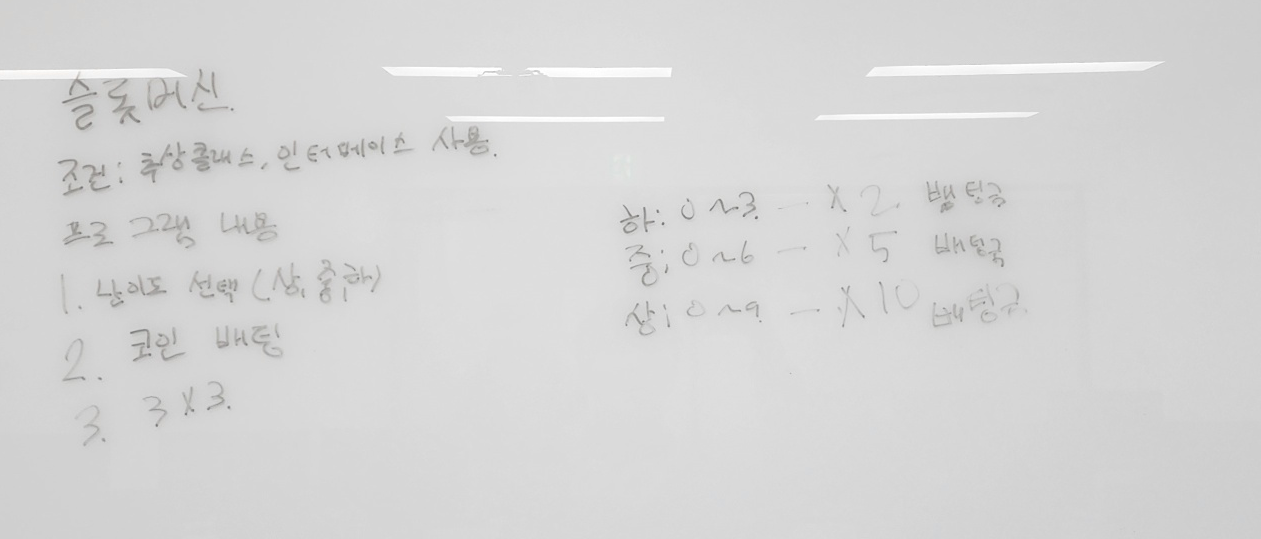 슬롯머신.
조건: 추상클래스, 인터페이스 사용.
프로그램 내용
1. 난이도 선택 (상, 중, 하)
2. 코인 배팅
3. 3X3.
하: 0~3. - X 2. 뱁팅금
중: 0~6 - X 5 배팅국
상: 0~9. - X 10 배팅금